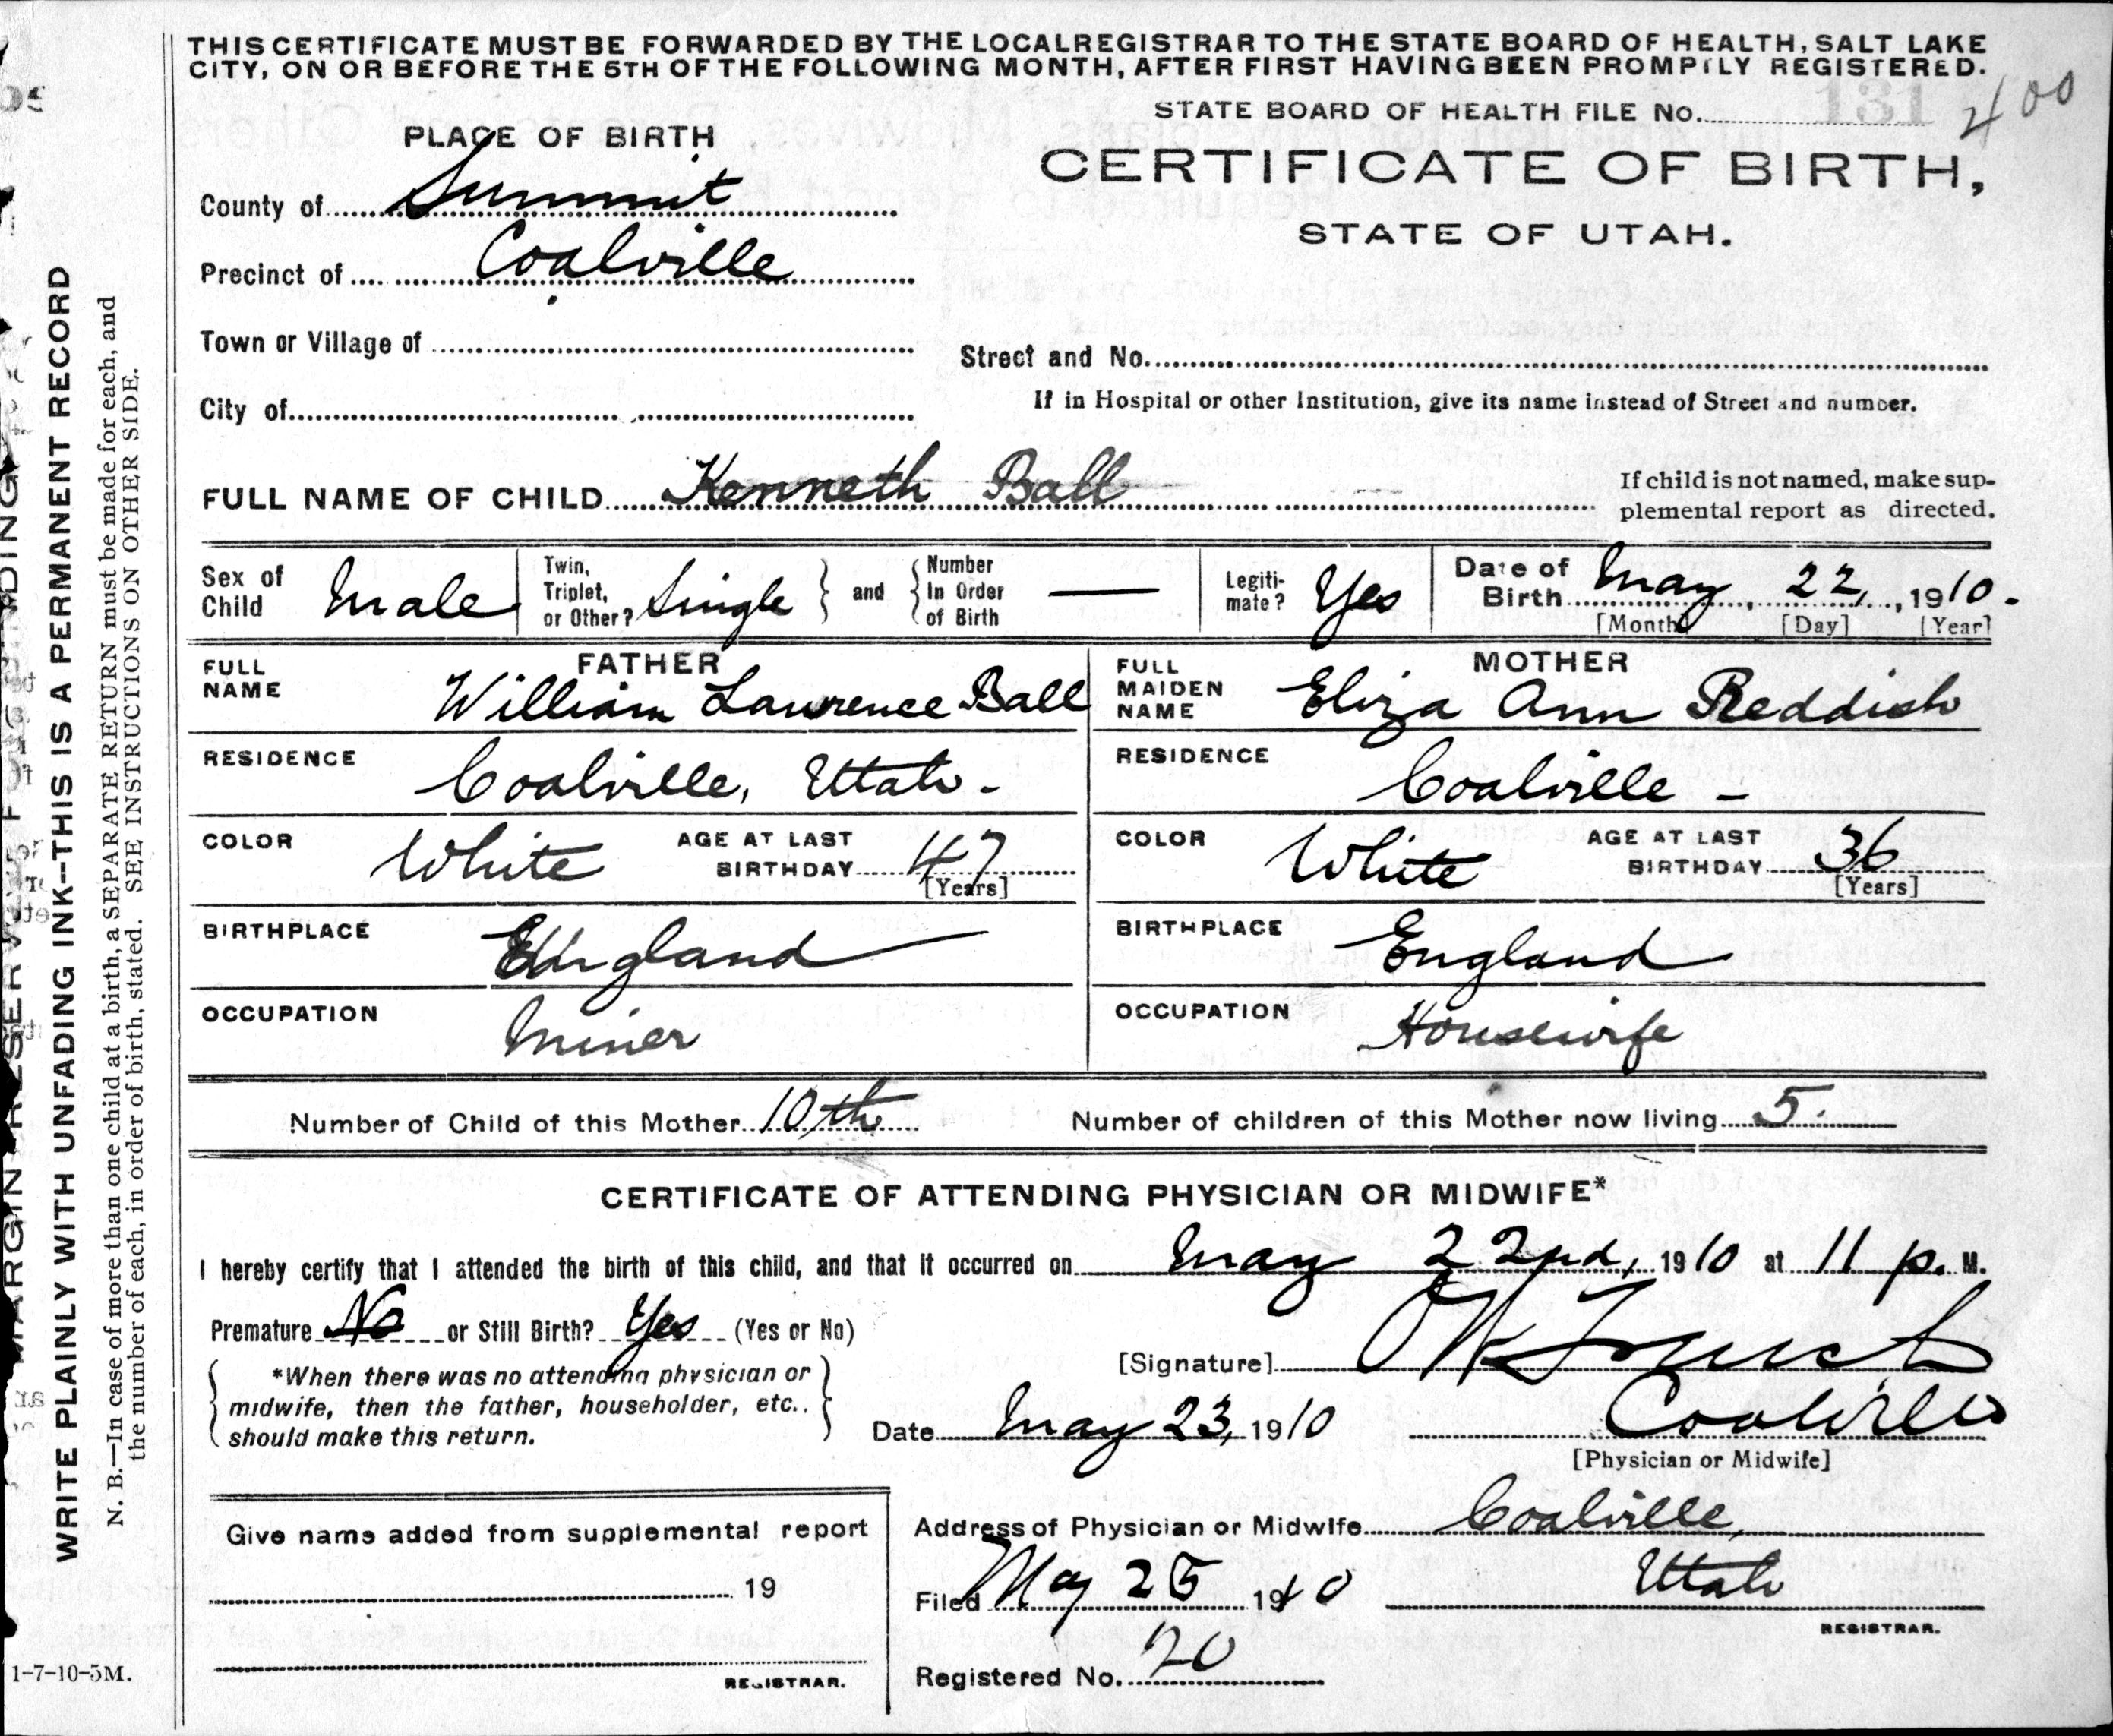 THIS CERTIFICATE MUST BE FORWARDED BY THE LOCAL REGISTRAR TO THE STATE BOARD OF HEALTH, SALT LAKE
CITY, ON OR BEFORE THE 5TH OF THE FOLLOWING MONTH, AFTER FIRST HAVING BEEN PROMPTLY REGISTERED.
STATE BOARD OF HEALTH FILE No. 131 400
PLACE OF BIRTH
CERTIFICATE OF BIRTH,
STATE OF UTAH.
County of Summit
Precinct of Coalville
Town or Village of
Street and No.
City of
If in Hospital or other Institution, give its name instead of Street and number.
FULL NAME OF CHILD Kenneth Ball
If child is not named, make sup-
plemental report as directed.
Sex of Child Male
Twin, Triplet, or Other? Single and Number In Order of Birth —
Legiti-mate? Yes
Date of Birth May, 22, 1910.
[Month] [Day] [Year]
FATHER
FULL NAME William Lawrence Ball
RESIDENCE Coalville, Utah -
COLOR White AGE AT LAST BIRTHDAY 47 [Years]
BIRTHPLACE England
OCCUPATION Miner
MOTHER
FULL MAIDEN NAME Eliza Ann Reddish
RESIDENCE Coalville -
COLOR White AGE AT LAST BIRTHDAY 36 [Years]
BIRTHPLACE England
OCCUPATION Housewife
Number of Child of this Mother 10th Number of children of this Mother now living 5.
CERTIFICATE OF ATTENDING PHYSICIAN OR MIDWIFE*
I hereby certify that I attended the birth of this child, and that it occurred on May 22nd, 1910 at 11 p. M.
Premature No or Still Birth? Yes (Yes or No)
*When there was no attending physician or
midwife, then the father, householder, etc.,
should make this return.
[Signature]
Date May 23, 1910 Coalville
[Physician or Midwife]
Give name added from supplemental report
19
REGISTRAR.
Address of Physician or Midwife Coalville,
Utah
Filed May 25 1910
REGISTRAR.
Registered No. 20
1-7-10-5M.
WRITE PLAINLY WITH UNFADING INK--THIS IS A PERMANENT RECORD
N. B.—In case of more than one child at a birth, a SEPARATE RETURN must be made for each, and
the number of each, in order of birth, stated. SEE INSTRUCTIONS ON OTHER SIDE.